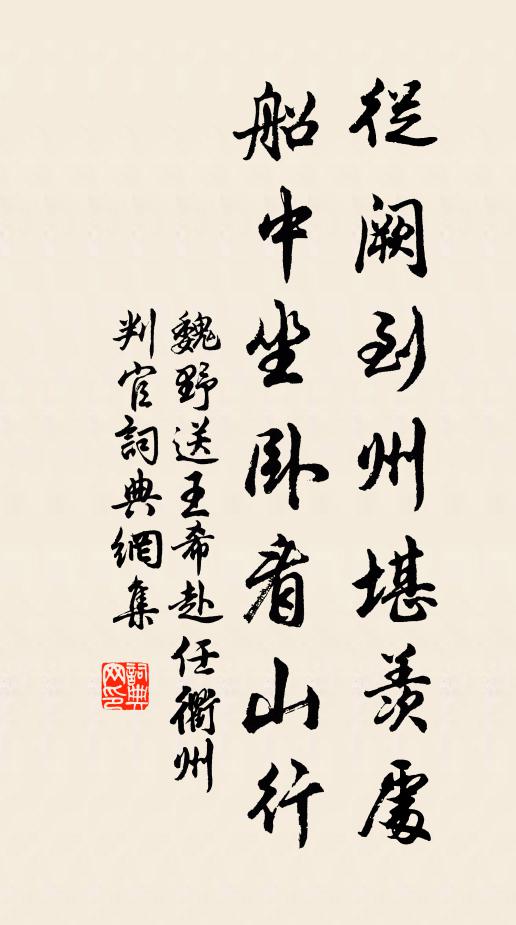 從阙到州堪羨處
船中坐卧看山行
魏野送王希赴任衢州
判官詞典網集
詞典
网印